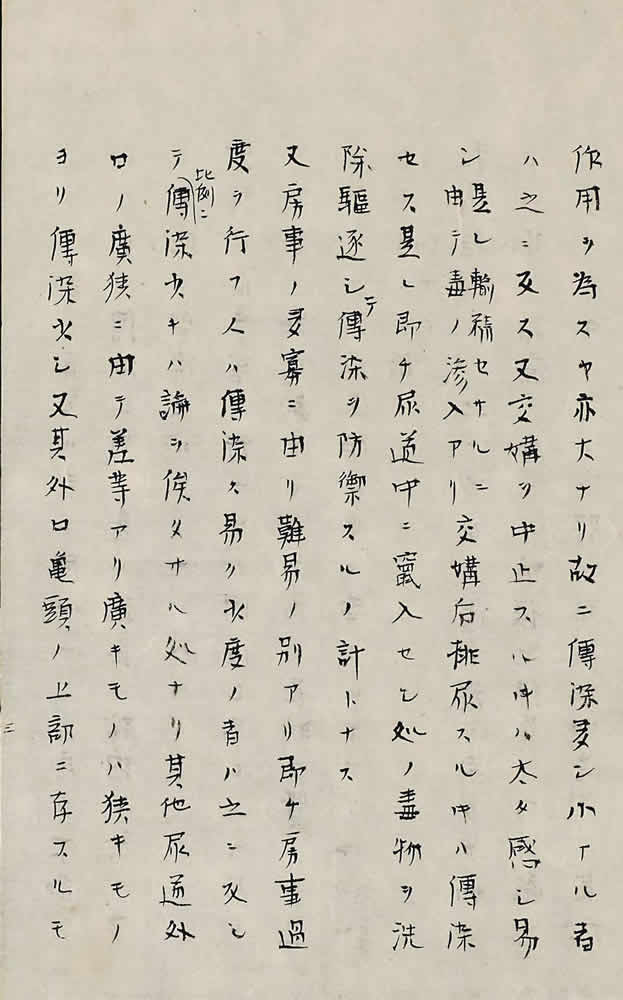 作用ヲ為スヤ亦大ナリ故ニ傳染夛シ小ナル者
ハ之ニ反ス又交媾ヲ中止スル中ハ太タ感シ易
シ是レ輸精セサルニ由テ毒ノ滲入アリ交媾后排尿スル中ハ傳染
セス是レ即チ尿道中ニ竄入セシ処ノ毒物ヲ洗
除驅逐シテ傳染ヲ防禦スルノ計トナス
又房事ノ夛寡ニ由リ難易ノ別アリ即チ房事過
度ヲ行フ人ハ傳染シ易ク少度ノ者ハ之ニ反シ
テ比例ニ傳染少キハ論ヲ俟タサル処ナリ其他尿道外
口ノ廣狭ニ由テ差等アリ廣キモノハ狭キモノ
ヨリ傳染少シ又其外口亀頭ノ上部ニ存スルモ
三